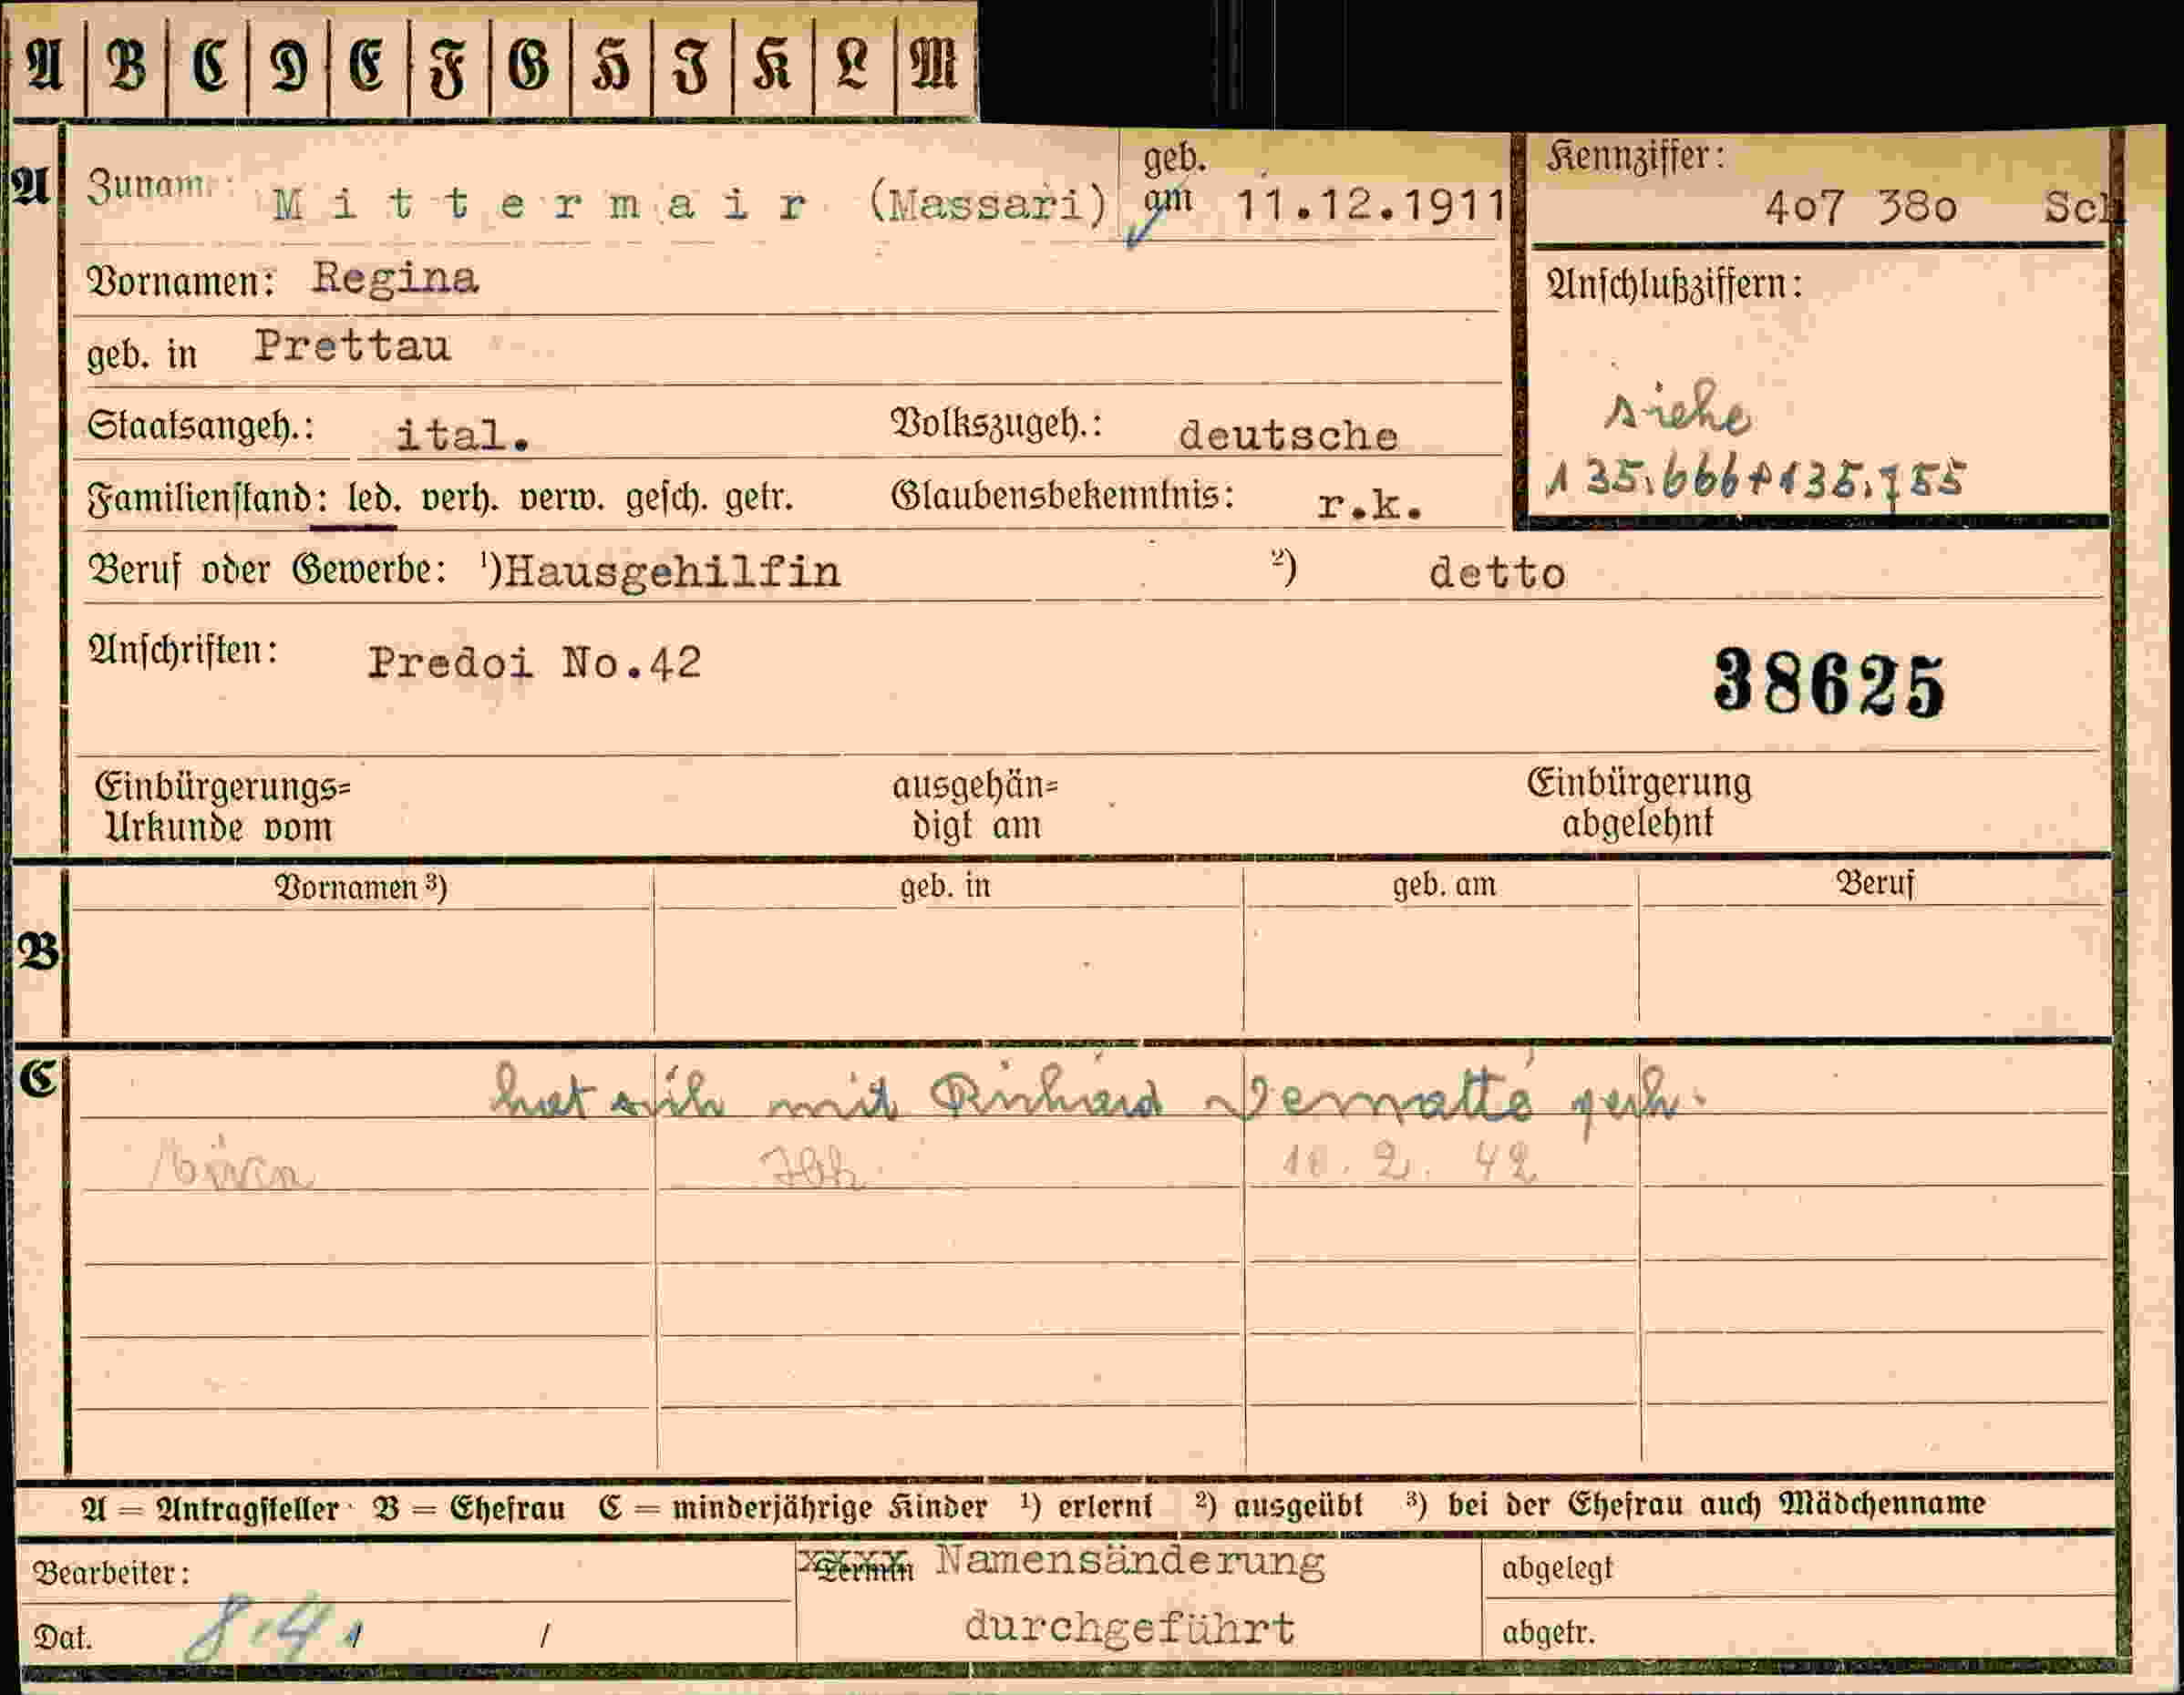 A B C D E F G H J K L M
A Zuname: Mittermair (Massari) geb. am 11.12.1911
Kennziffer: 407 380 Sch
Vornamen: Regina
Anschlußziffern:
geb. in Prettau
siehe
Staatsangeh.: ital. Volkszugeh.: deutsche
135.666+135.755
Familienstand: led. verh. verw. gesch. getr. Glaubensbekenntnis: r.k.
Beruf oder Gewerbe: ¹)Hausgehilfin ²) detto
Anschriften: Predoi No.42
38625
Einbürgerungs= Urkunde vom ausgehän= digt am Einbürgerung abgelehnt
Vornamen ³) geb. in geb. am Beruf
B
C hat sich mit Richard
10. 2. 42
A = Antragsteller B = Ehefrau C = minderjährige Kinder ¹) erlernt ²) ausgeübt ³) bei der Ehefrau auch Mädchenname
Bearbeiter: Termin Namensänderung abgelegt
Dat. 8.4 / / durchgeführt abgetr.